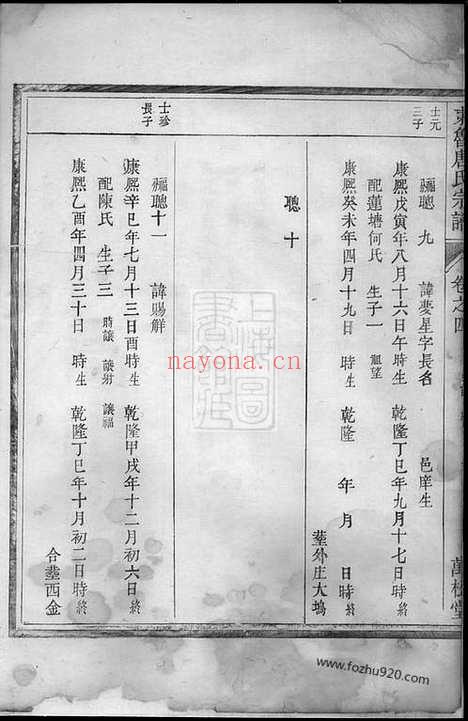 東魯唐氏宗譜
卷之四
萬松堂
士元
三子
聰九 諱夢星字長名 邑庠生
康熙戊寅年八月十六日午時生 乾隆丁巳年九月十七日時終
配蓮塘何氏 生子一 繼望
康熙癸未年四月十九日時生 乾隆 年 月 日時終
塟外庄大塢
聰十
士珍
長子
聰十一 諱賜鮮
康熙辛巳年七月十三日酉時生 乾隆甲戌年十二月初六日終
配陳氏 生子三 時讓 讓尉 讓福
康熙乙酉年四月三十日 時生 乾隆丁巳年十月初二日時終
合塟西金
上海圖書館藏
nayona.cn
www.fozhu920.com